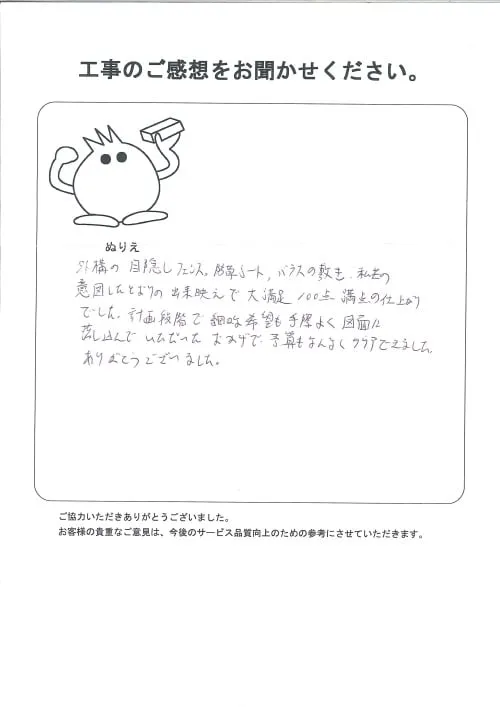 工事のご感想をお聞かせください。
ぬりえ
外構の目隠しフェンス、防草シート、バラスの敷も、私達の
意図したとおりの出来映えで大満足 100点満点の仕上がり
でした。計画段階で細かな希望も手際よく図面に
落し込んでいただいたおかげで予算もなんなくクリアできました。
ありがとうございました。
ご協力いただきありがとうございました。
お客様の貴重なご意見は、今後のサービス品質向上のための参考にさせていただきます。